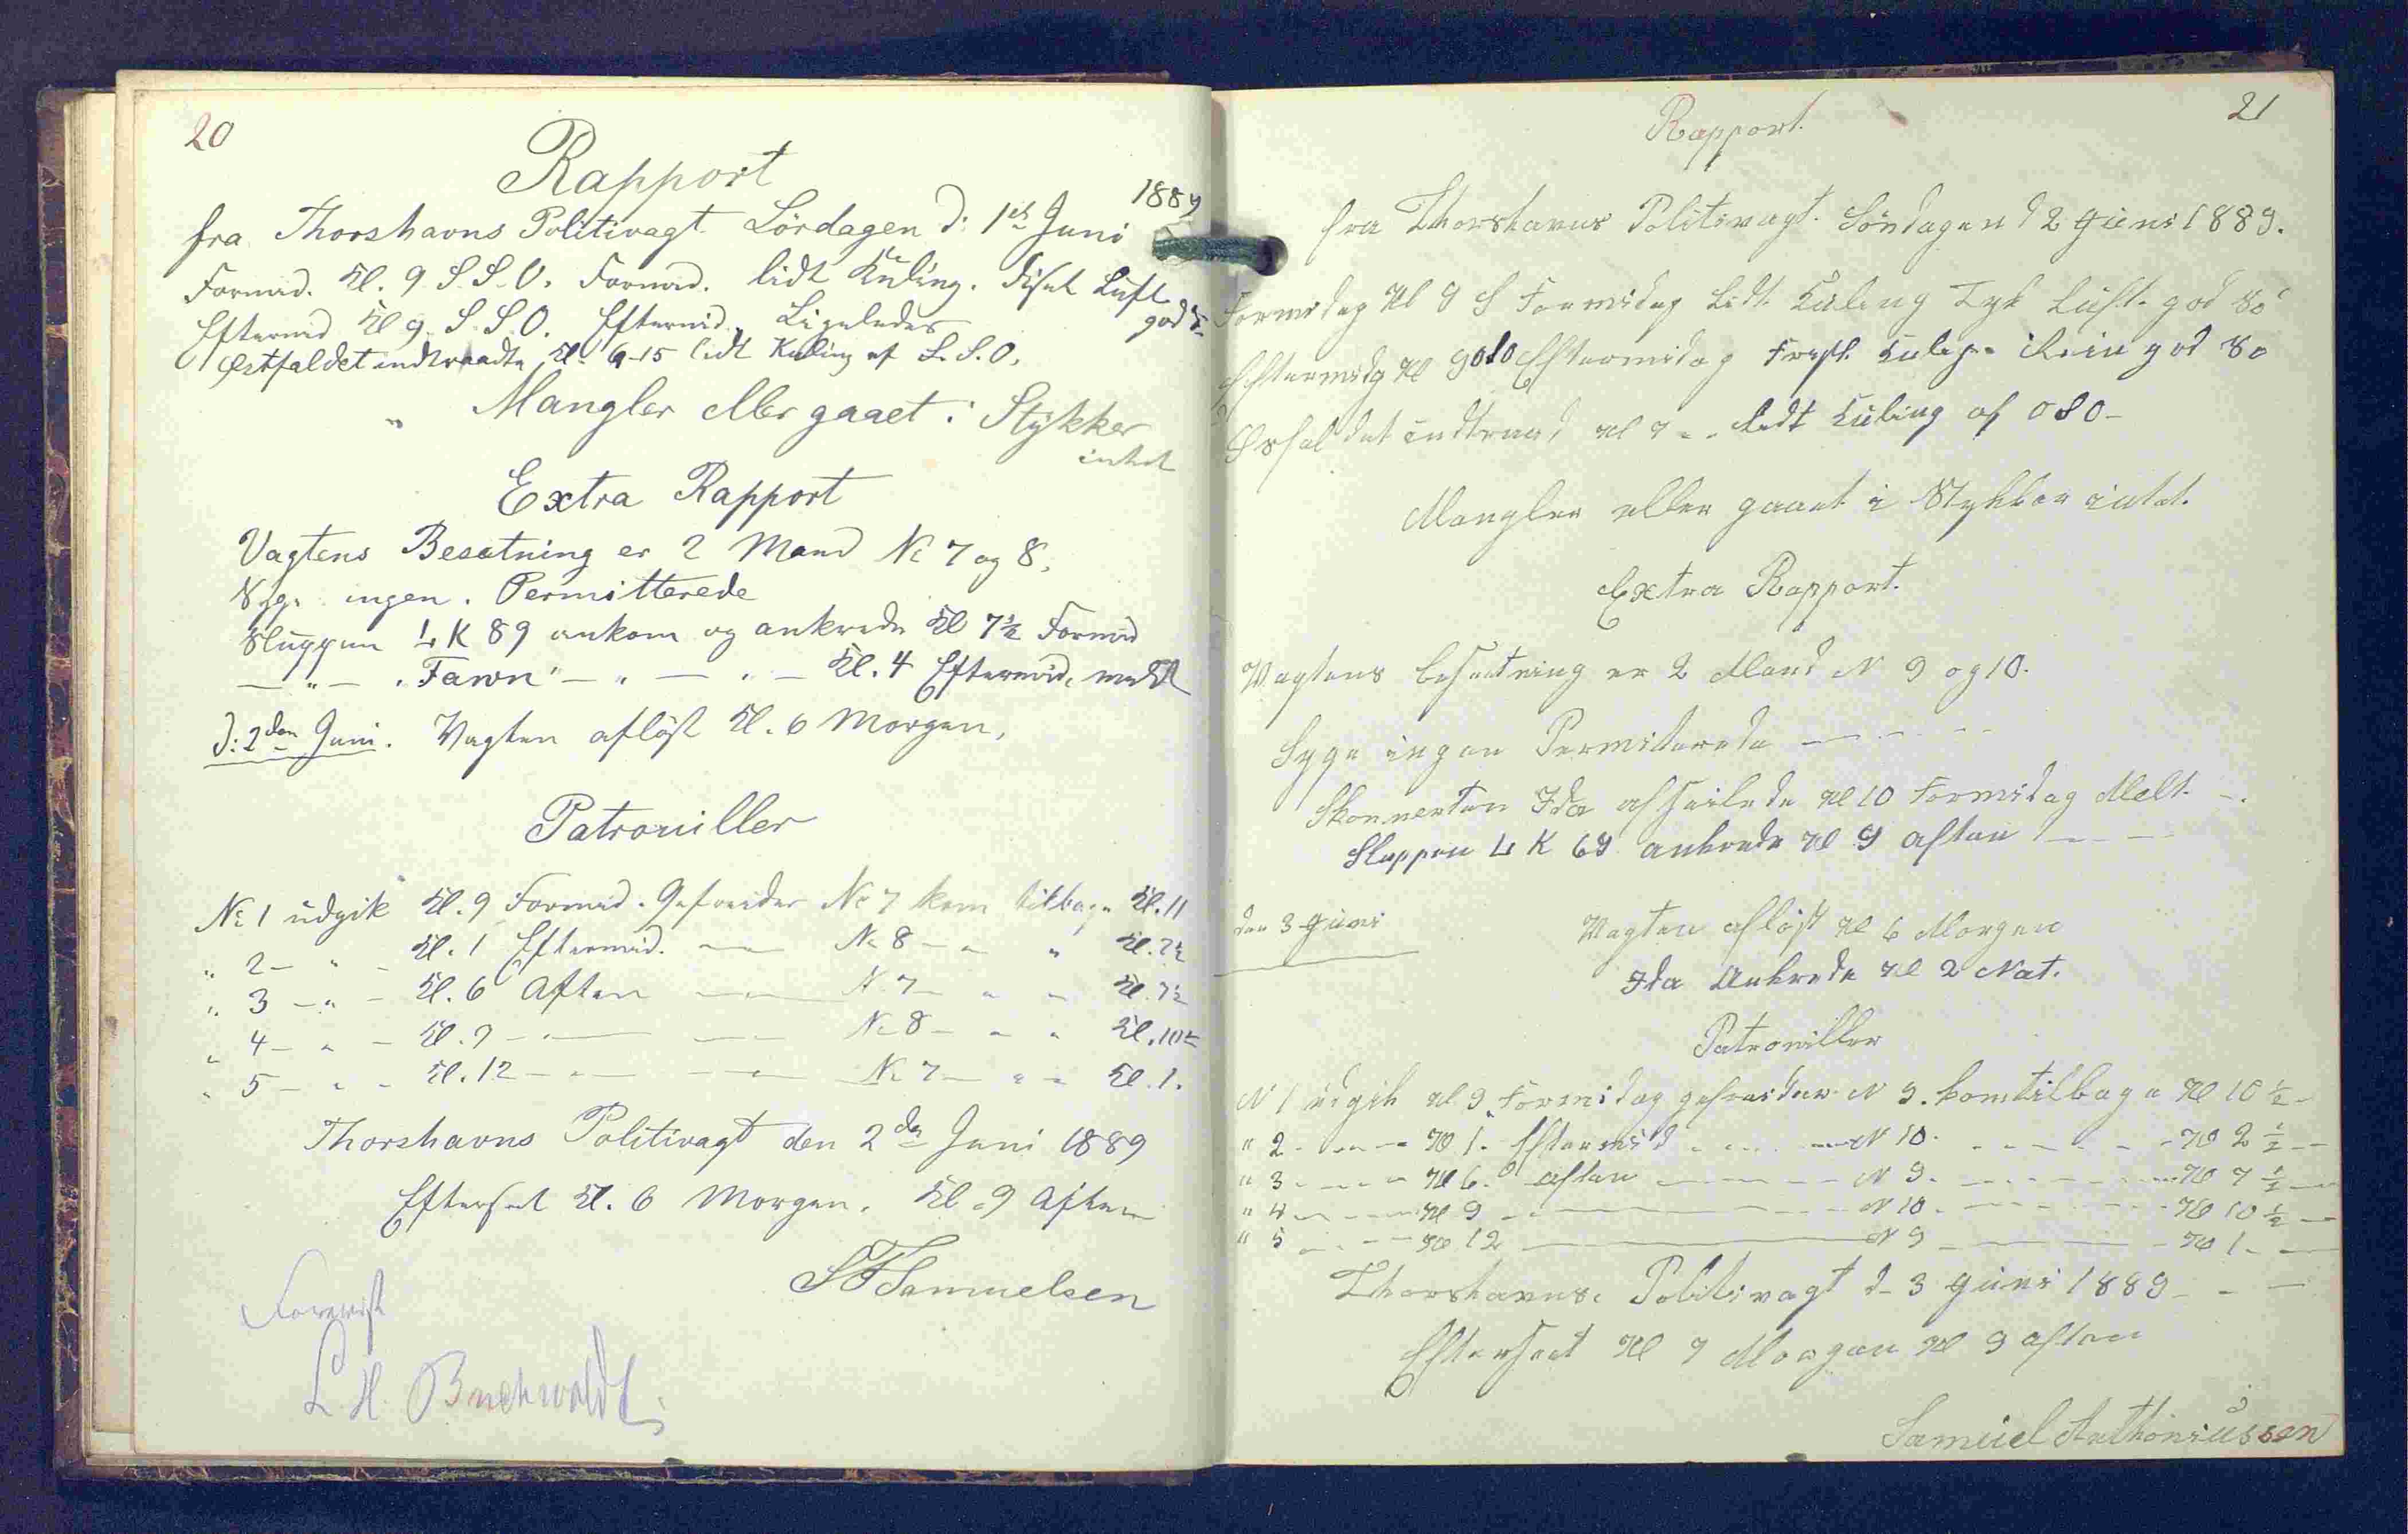 20
Rapport
fra Thorshavns Politivagt Lördagen d: 1st Juni 1889
Formid. Kl. 9 S.S.O. Formid. lidt Kuling. Diset Luft god
Eftermid Kl 9 S.S.O. Eftermid. Ligeledes
Østfaldet indtraadte Kl. 6-15 lidt Kuling af S.S.O.
" Mangler eller gaaet i Stykker
intet
Extra Rapport
Vagtens Besætning er 2 Mand No 7 og 8.
Syge ingen. Permitterede
Sluppen LK 89 ankom og ankrede Kl 7½ Formid
— " — "Fawn" — " — " — Kl. 4 Eftermid.
D: 2den Juni. Vagten afløst Kl. 6 Morgen.
Patrouiller
No 1 udgik Kl. 9 Formid. Gefreider No 7 kom tilbage Kl. 11
" 2 — " — Kl. 1 Eftermid. — No 8 — " " Kl. 2½
" 3 — " — Kl. 6 Aften — N. 7 — " — Kl. 7½
" 4 — " — Kl. 9 — " — No 8 — " " Kl. 10½
" 5 — " — Kl. 12 — " — No 7 — " — Kl. 1.
Thorshavns Politivagt den 2den Juni 1889
Efterset Kl. 6 Morgen. Kl. 9 Aften
SFSamuelsen
Forevist
L. H. Buchwaldt
21
Rapport.
fra Thorshavns Politivagt. Söndagen d 2 Juni 1889.
Formidag Kl 9 S Formidag Lidt Kuling Tyk Luft. god So
Eftermidg Kl 9 OSO Eftermidag Frisk Kuling. Rein god So
Østfaldet indtraad Kl 7 - - Lidt Kuling af OSO -
Mangler eller gaaet i Stykker intet.
Extra Rapport.
Vagtens besætning er 2 Mand N 9 og 10.
Syge ingen Permiterede — - - -
Skonnerten Ida afseilede Kl 10 Formidag Melt. -.
Sluppen LK 69 ankrede Kl 9 aften — —
den 3 Juni
Vagten afløst Kl 6 Morgen
Ida Ankrede Kl 2 Nat.
Patrouiller
N 1 udgik Kl 9 Formidag gefreider N 9. kom tilbage Kl 10 ½ -
" 2 - — - Kl 1. Eftermid - - - — N 10. - - - - - Kl 2 ½ —
" 3 - — - Kl 6. aften — — — N 9. - - - - Kl 7 ½ —
" 4 — - — Kl 9 — — — N 10. - - - - Kl 10 ½ —
" 5 — - — Kl 12 — — N 9 — — - Kl 1. —
Thorshavns. Politivagt d- 3 Juni 1889 - - —
Efterset Kl 7 Morgen Kl 9 aften
Samuel Anthoniussen